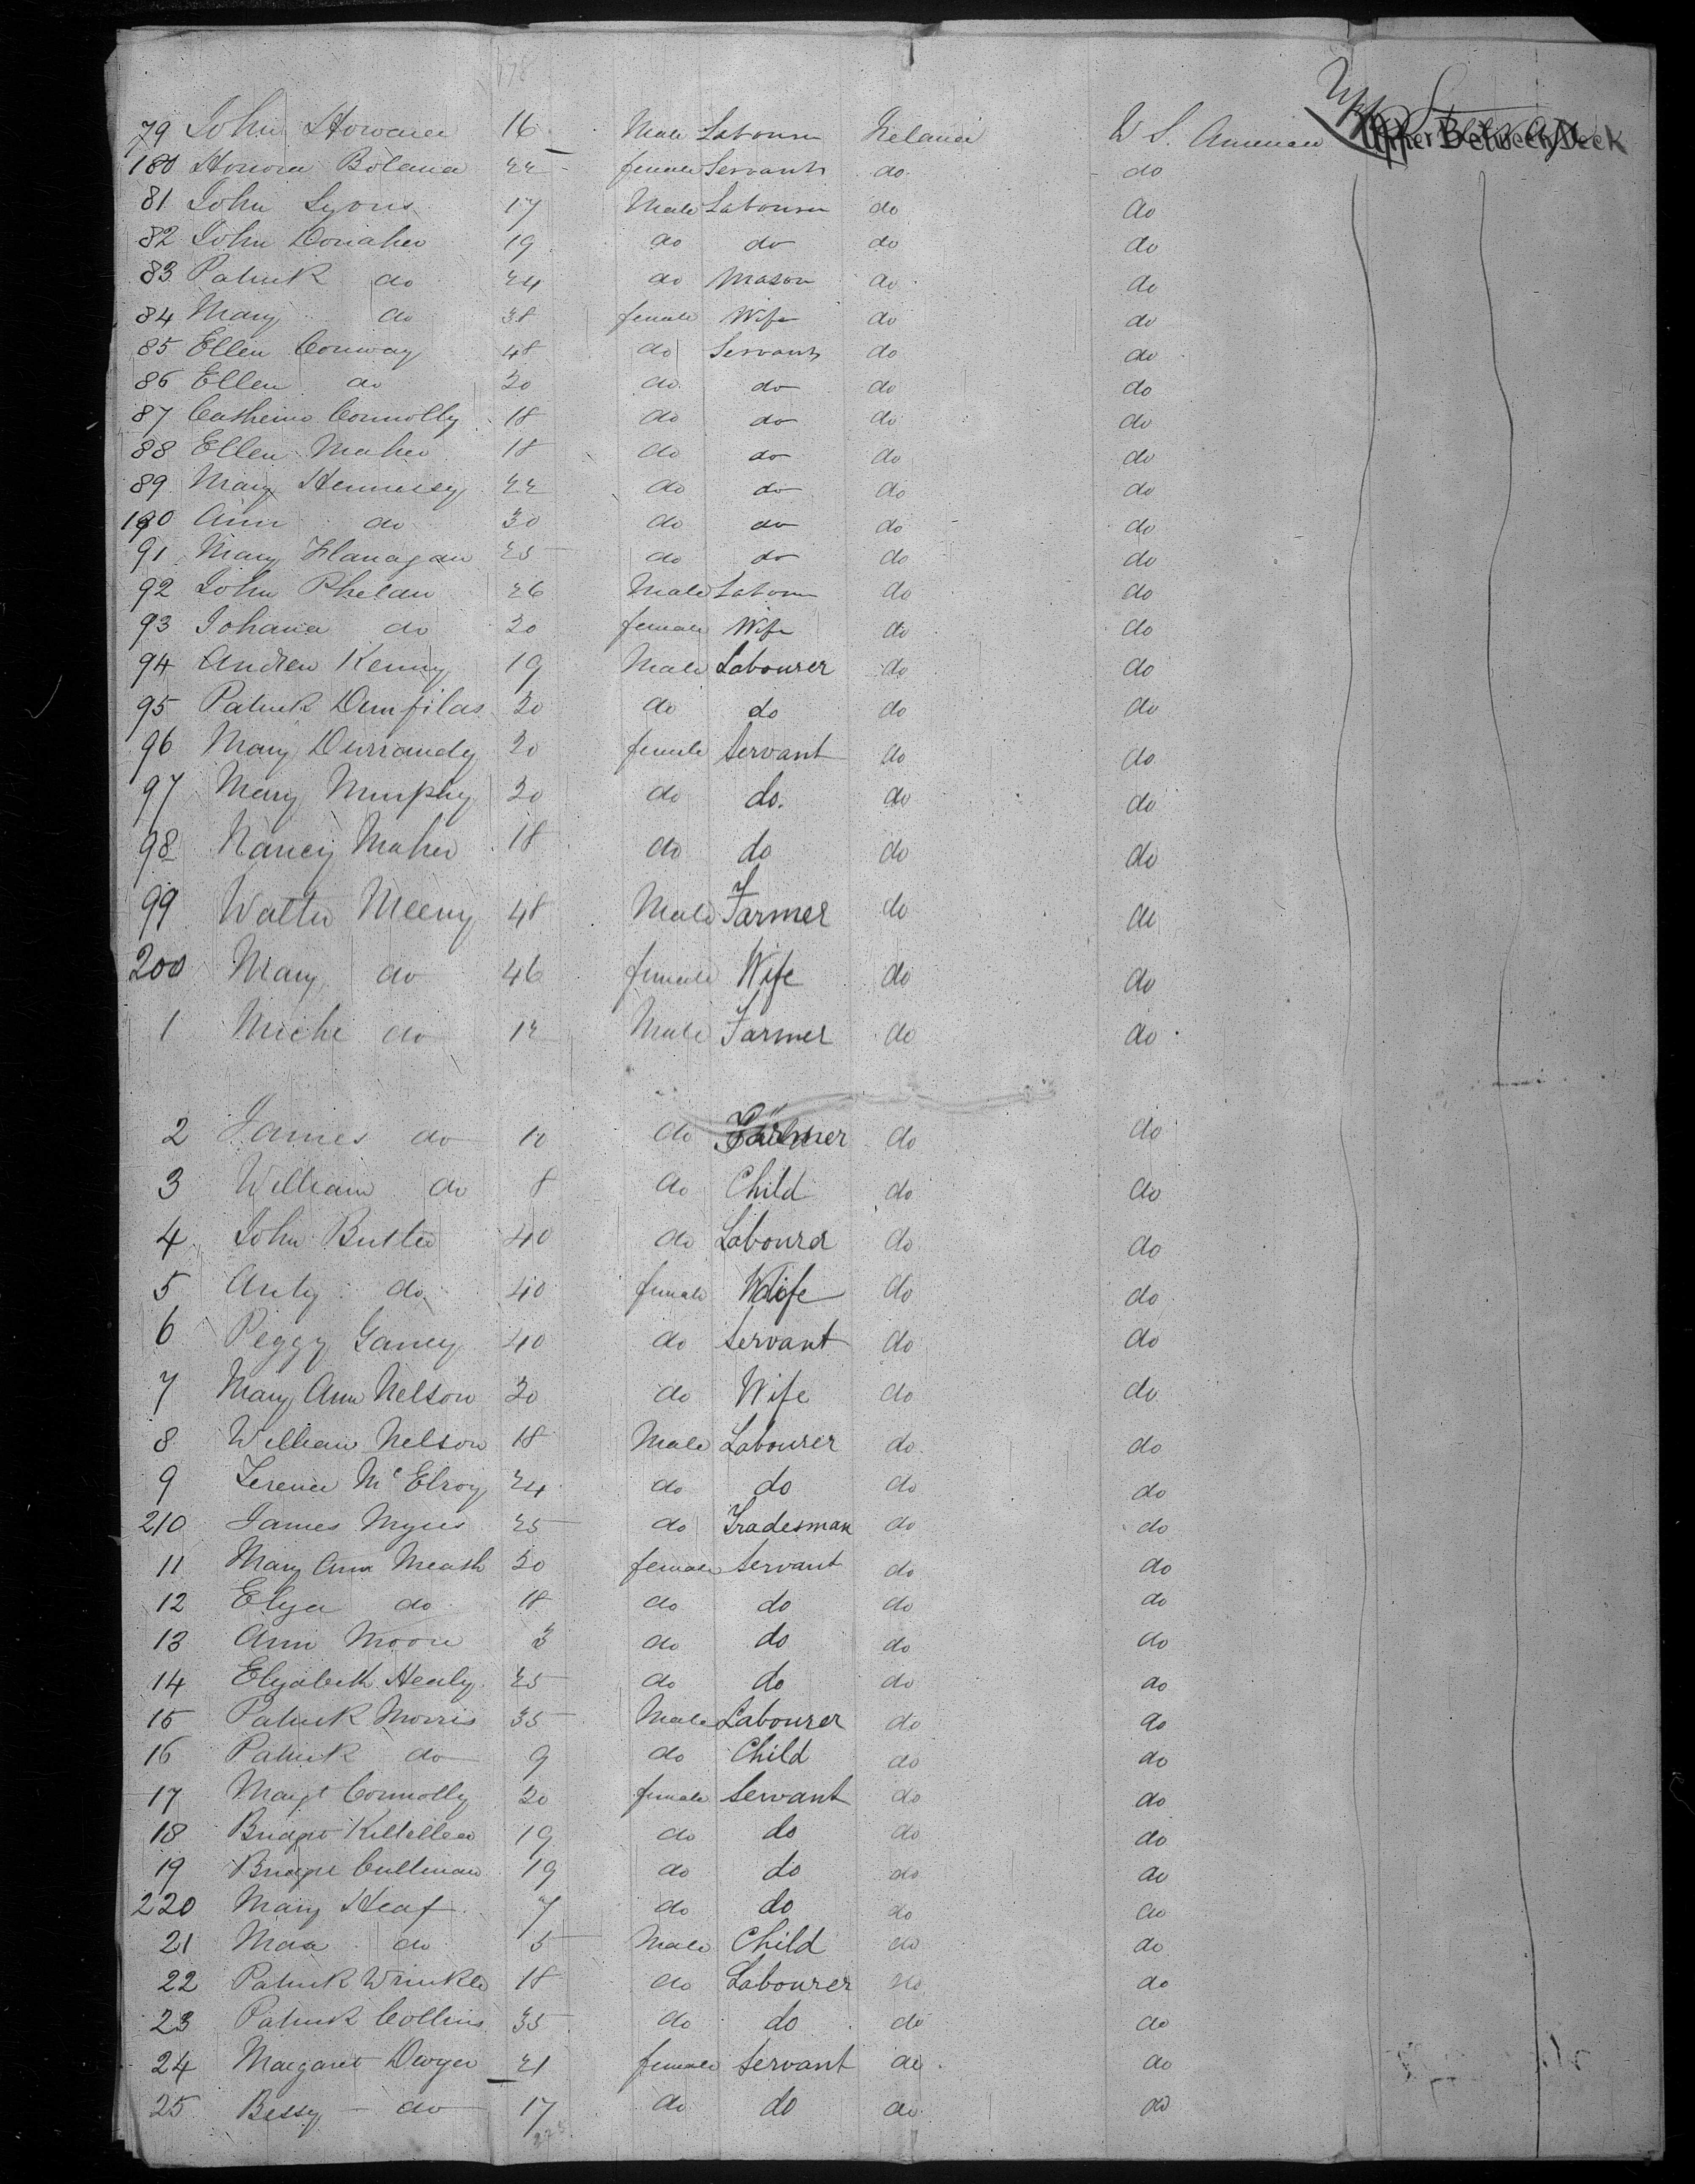 178
79 John Howard 16 Male Labourer Ireland U S. America Upper Between Deck
180 Honora Boland 22 female Servant do do
81 John Lyons 17 Male Labourer do do
82 John Donaher 19 do do do do
83 Patrick do 24 do Mason do do
84 Mary do 38 female Wife do do
85 Ellen Conway 48 do Servant do do
86 Ellen do 20 do do do do
87 Catherine Connolly 18 do do do do
88 Ellen Maher 18 do do do do
89 Mary Hennessy 22 do do do do
190 Ann do 30 do do do do
91 Mary Flanagan 25 do do do do
92 John Phelan 26 Male Labourer do do
93 Johana do 20 female Wife do do
94 Andrew Kenny 19 Male Labourer do do
95 Patrick Dumfilas 20 do do do do
96 Mary Durrandy 20 female Servant do do
97 Mary Murphy 20 do do. do do
98 Nancy Maher 18 do do do do
99 Walter Meeny 48 Male Farmer do do
200 Mary do 46 female Wife do do
1 Michl do 12 Male Farmer do do
2 James do 10 do Farmer do do
3 William do 8 do Child do do
4 John Butler 40 do Labourer do do
5 Anty do 40 female Wife do do
6 Peggy Gancy 40 do Servant do do
7 Mary Ann Nelson 20 do Wife do do
8 William Nelson 18 Male Labourer do do
9 Terence McElroy 24 do do do do
210 James Myers 25 do Tradesman do do
11 Mary Ann Meath 20 female Servant do do
12 Elyza do 18 do do do do
13 Ann Moore 3 do do do do
14 Elyzabeth Healy 25 do do do do
15 Patrick Morris 35 Male Labourer do do
16 Patrick do 9 do Child do do
17 Margt Connolly 20 female Servant do do
18 Bridget Killelea 19 do do do do
19 Bridget Cullinan 19 do do do do
220 Mary Heaf 7 do do do do
21 do 5 Male Child do do
22 Patrick Wrinkle 18 do Labourer do do
23 Patrick Collins 35 do do do do
24 Margaret Dwyer 21 female Servant do do
25 Bessy do 17 do do do do